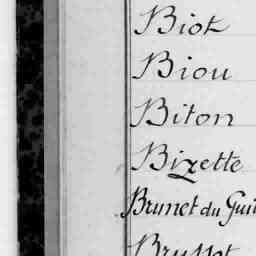 Biot
Biou
Biton
Bizette
Brunet du Gui